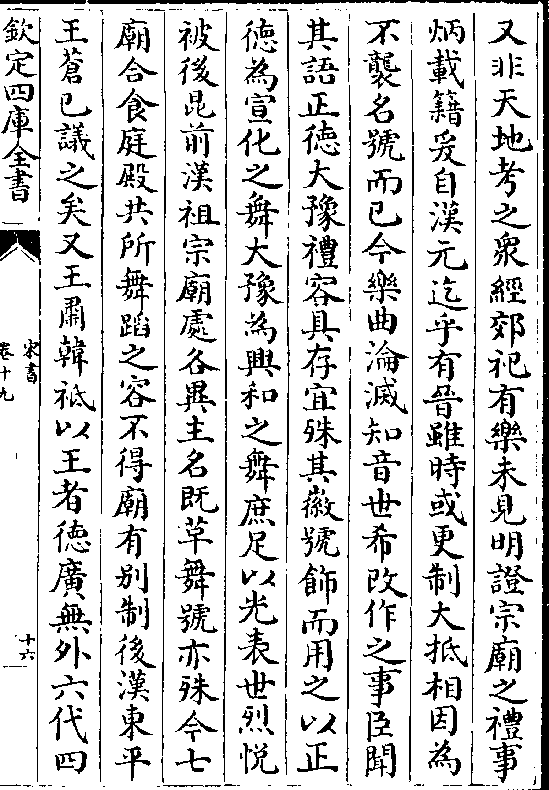 又非天地考之衆經郊祀有樂未見明證宗廟之禮事
炳載籍爰自漢元迄乎有晉雖時或更制大抵相因為
不襲名號而已今樂曲淪滅知音世希改作之事臣聞
其語正徳大豫禮容具存宜殊其徽號飾而用之以正
徳為宣化之舞大豫為興和之舞庶足以光表世烈悦
被後昆前漢祖宗廟處各異主名既革舞號亦殊今七
廟合食庭殿共所舞蹈之容不得廟有别制後漢東平
王蒼已議之矣又王肅韓祗以王者徳廣無外六代四
欽定四庫全書
宋書
卷十九
十六